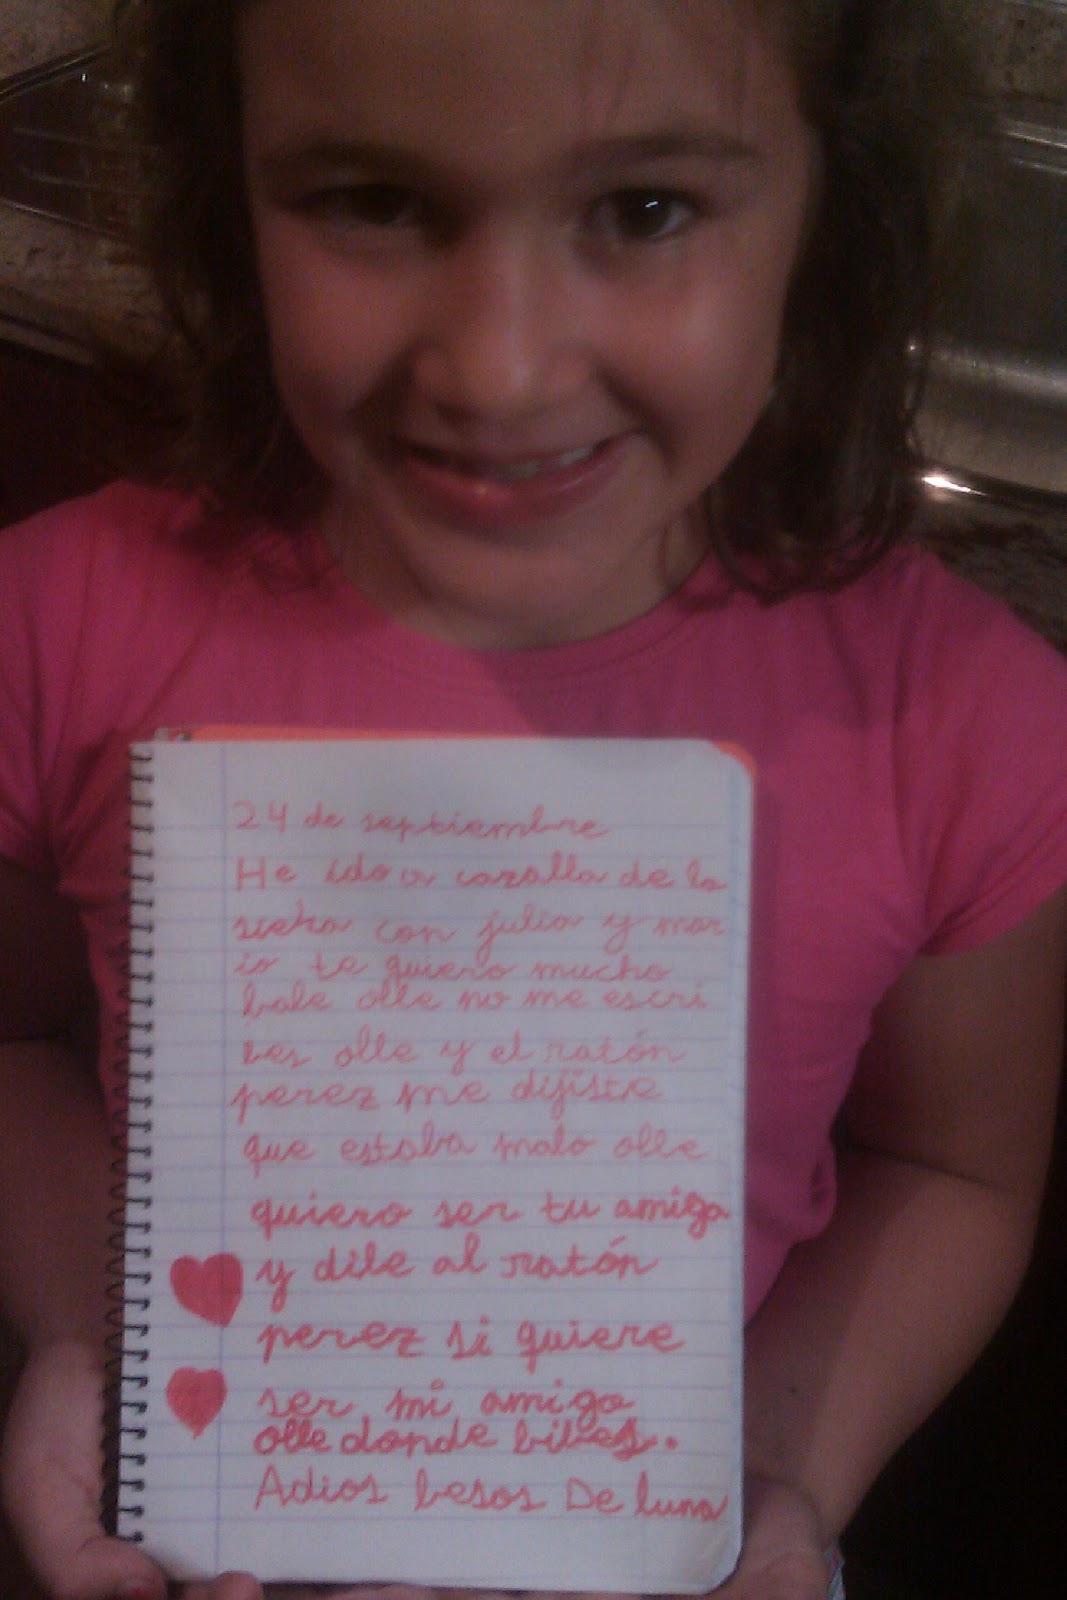 24 de septiembre
He ido a cazalla de la
siera con julia y mar
io te quiero mucho
bale olle no me escri
bes olle y el ratón
perez me dijiste
que estaba malo olle
quiero ser tu amiga
y dile al ratón
perez si quiere
ser mi amigo
olle donde bibes.
Adios besos De luna